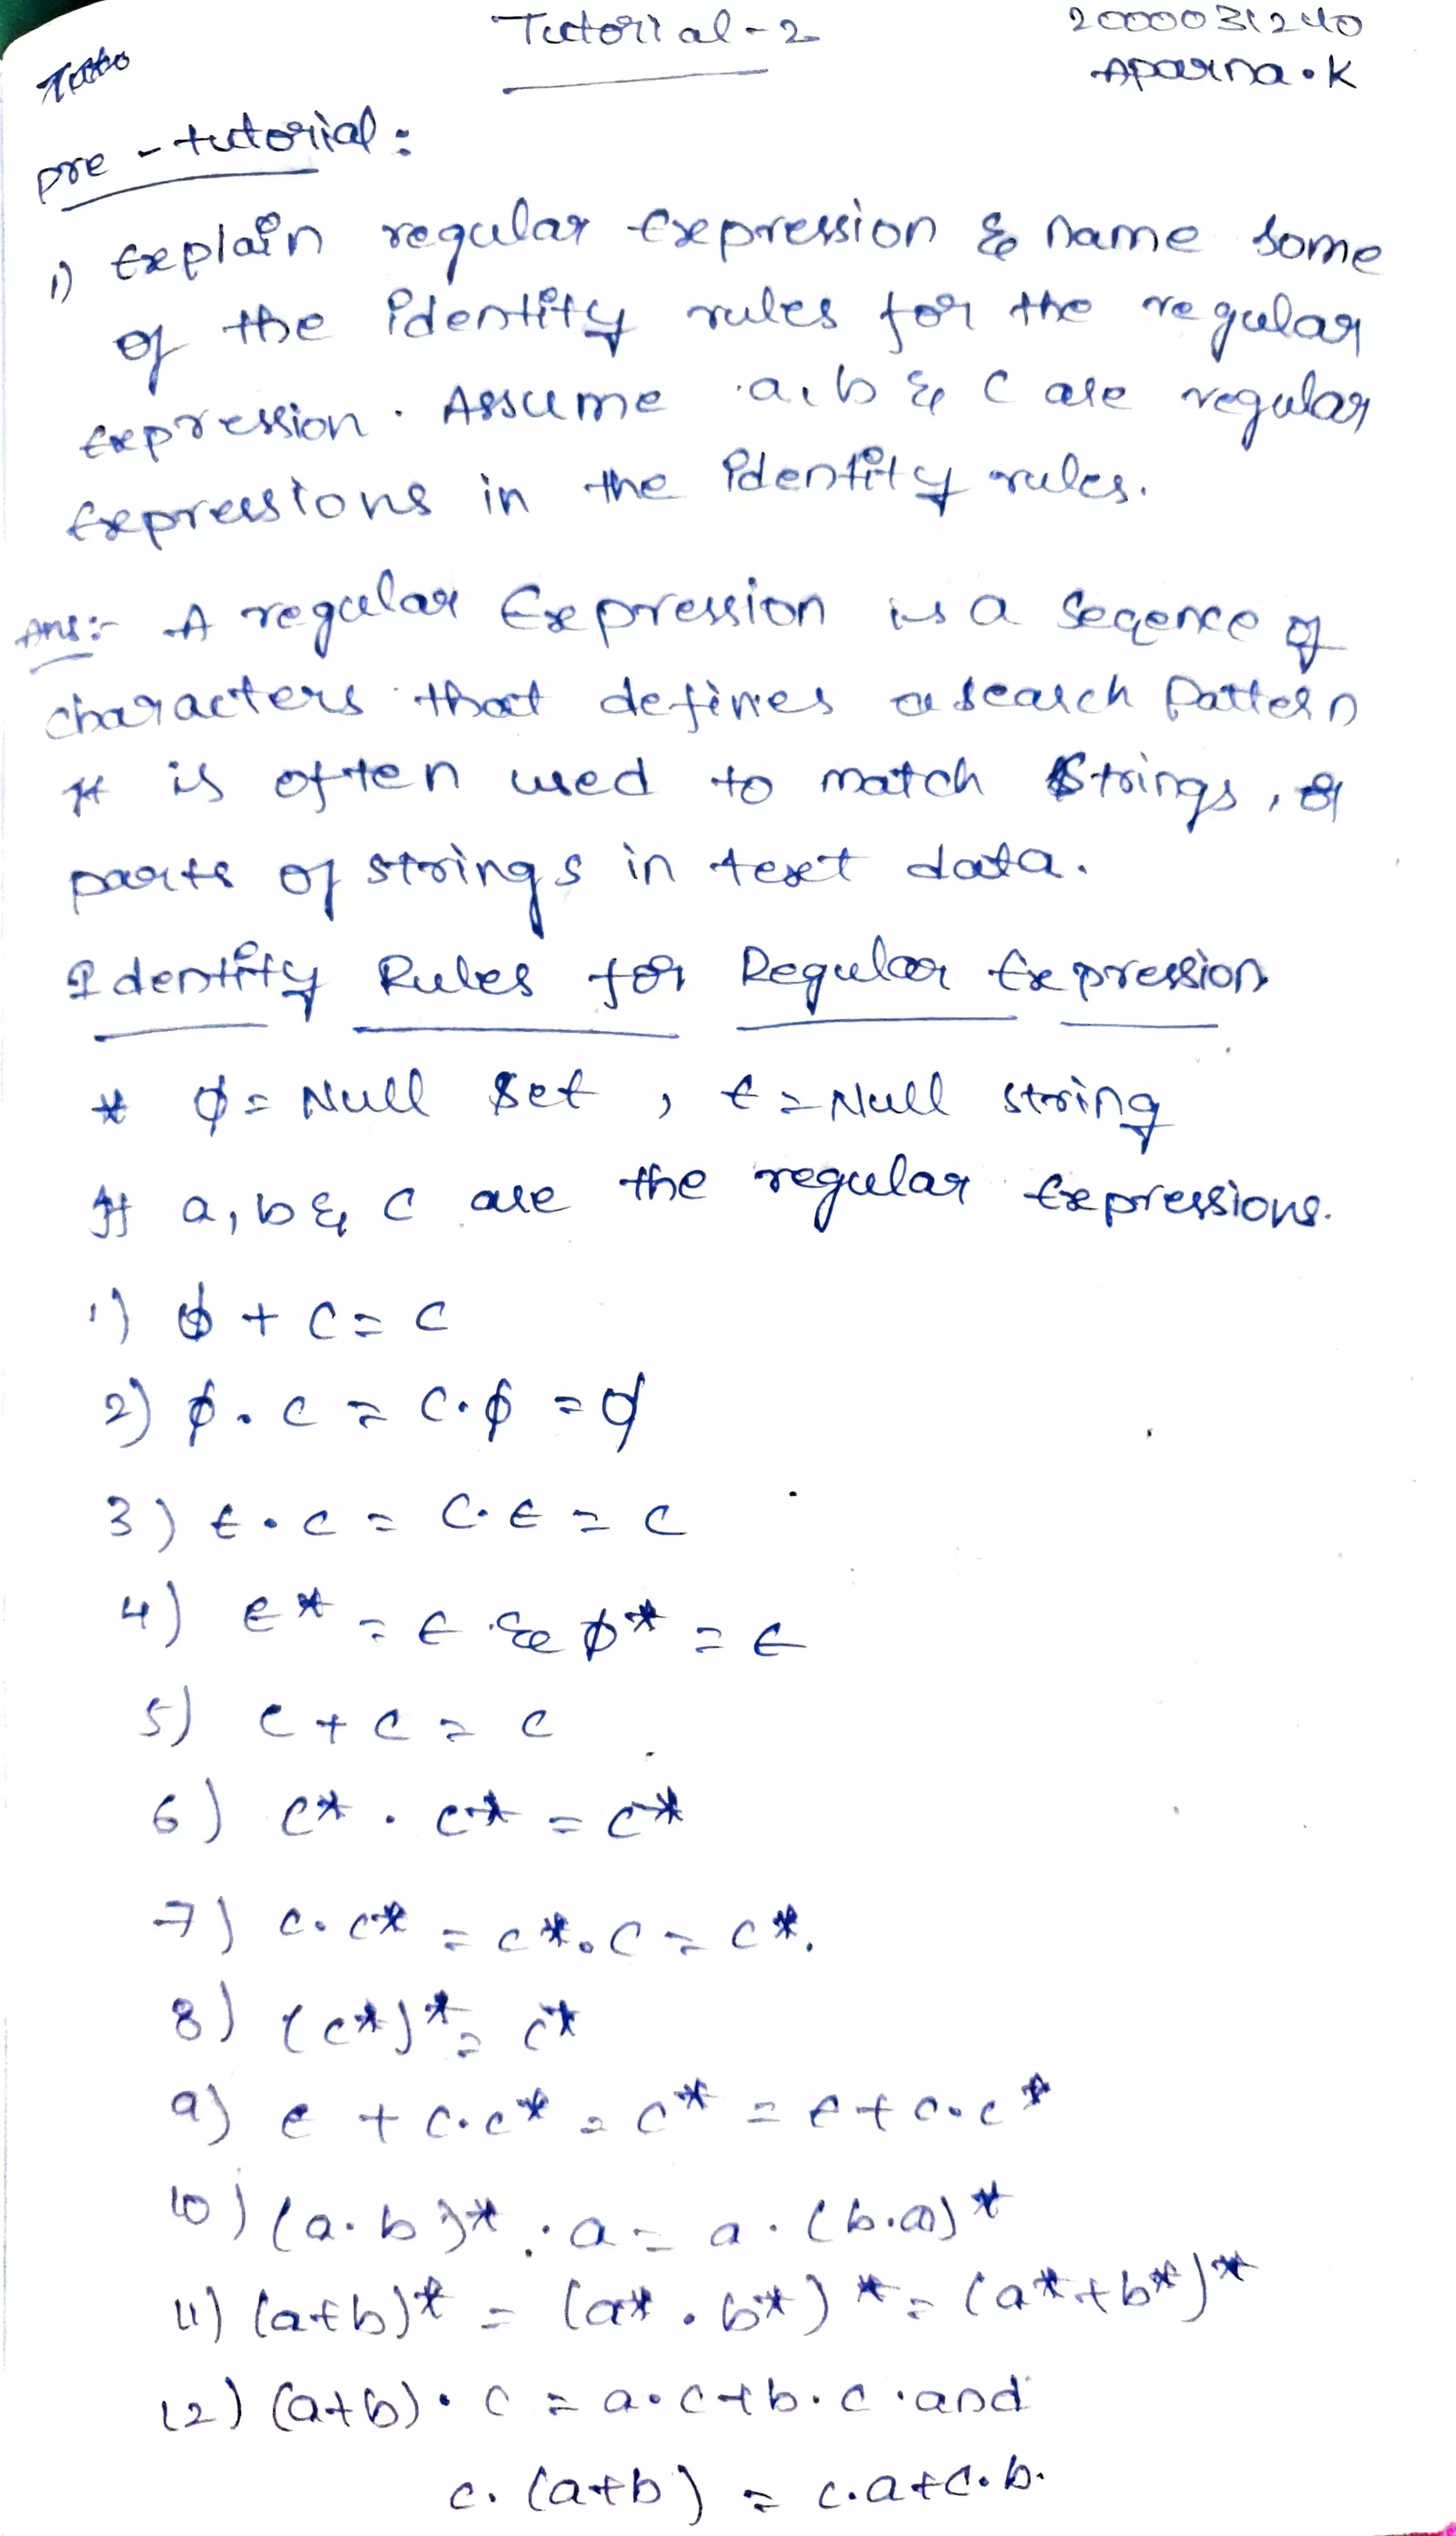 Tutorial-2
2000031240
Aparna.K
pre-tutorial:
1) Explain regular Expression & name some
of the identity rules for the regular
Expression. Assume a,b & c are regular
Expressions in the identity rules.
Ans:- A regular Expression is a Seqence of
characters that defines a search pattern
It is often used to match Strings, or
parts of strings in text data.
Identity Rules for Regular Expression
* ϕ = Null Set, ϵ = Null string
If a, b & c are the regular Expressions.
1) ϕ + c = c
2) ϕ . c = c.ϕ = ϕ
3) ϵ . c = c.ϵ = c
4) ϵ* = ϵ & ϕ* = ϵ
5) c + c = c
6) c* . c* = c*
7) c.c* = c*.c = c*.
8) (c*)* = c*
9) e + c.c* = c* = e + c.c*
10) (a.b)*.a = a.(b.a)*
11) (a+b)* = (a*.b*)* = (a*+b*)*
12) (a+b).c = a.c+b.c and
c.(a+b) = c.a+c.b.